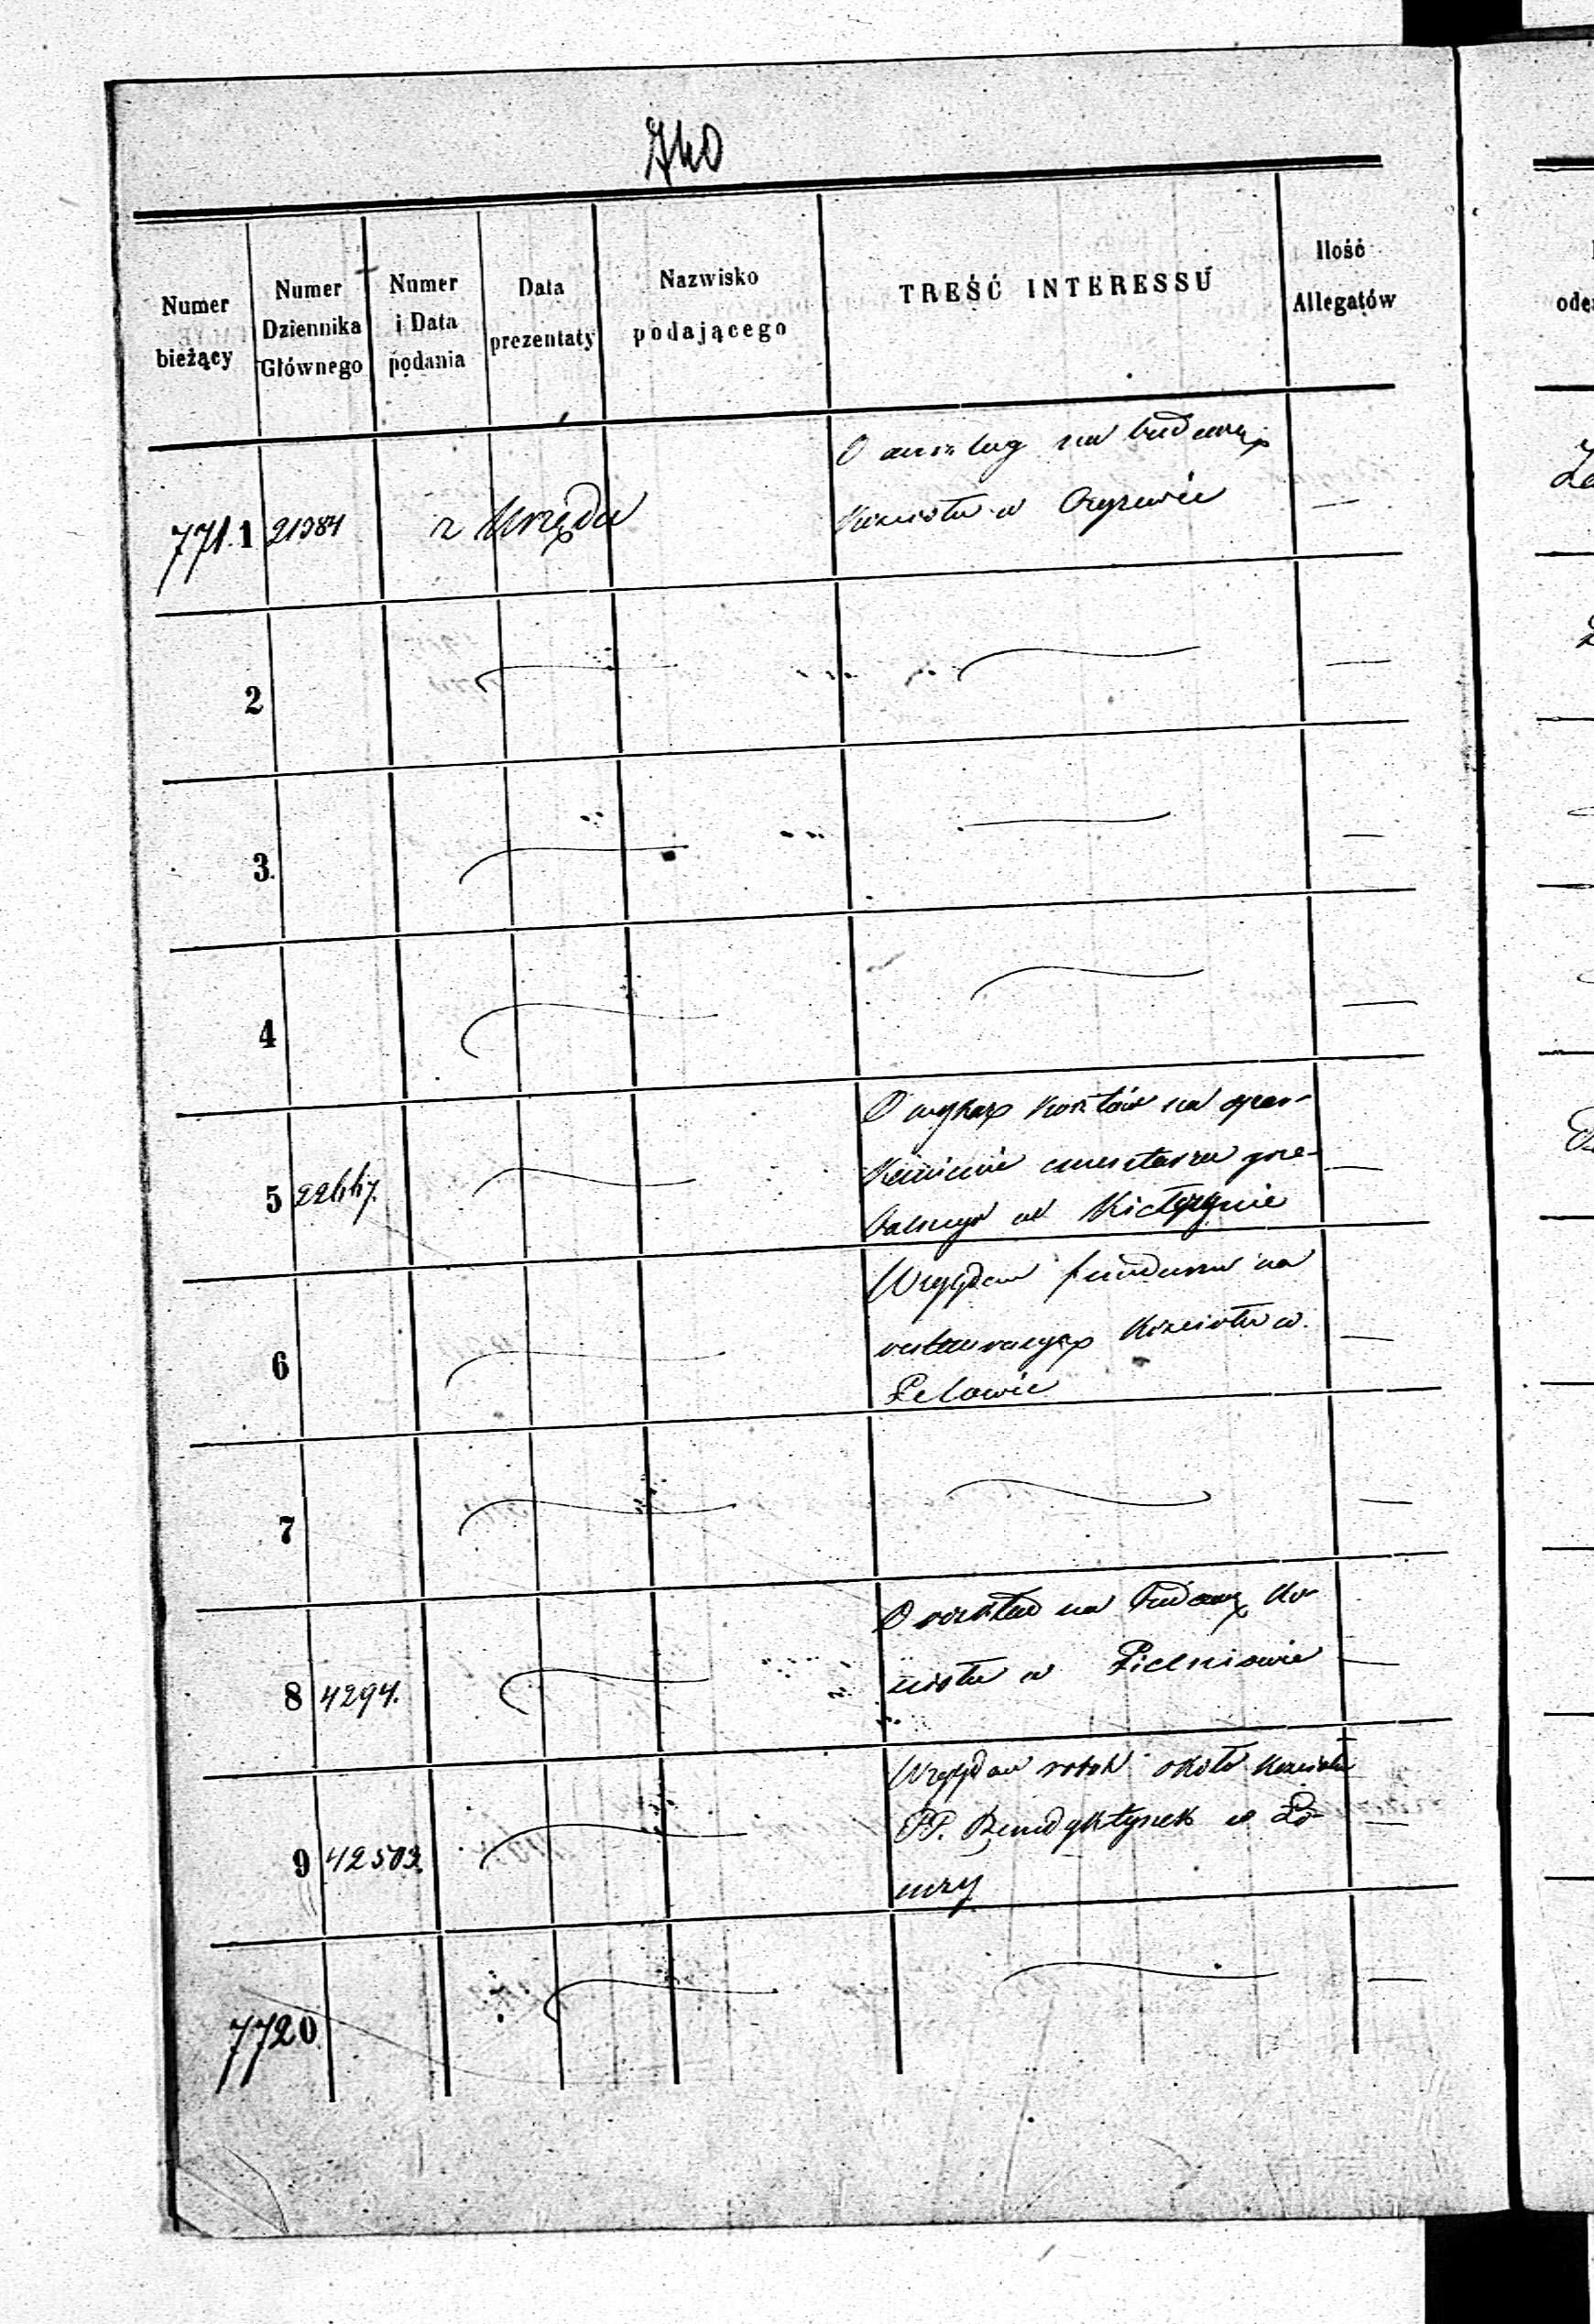 Numer bieżący
Numer Dziennika Głównego
Numer i Data podania
Data prezentaty
Nazwisko podającego
TREŚĆ INTERESSU
Ilość Allegatów
771.1 21384 z Urzędu
O anszlag na budowę
Kościoła w
2
3.
4
5 22667.
O wykaz kosztów na
cmentarza grze-
balnego w
6
Względem funduszu na
restauracyą Kościoła w.
7
8 4294.
O rozkład na budowę Ko-
ścioła w
9 42503.
Względem robót około kościoła
PP. Benedyktynek w Ło-
mży
7720